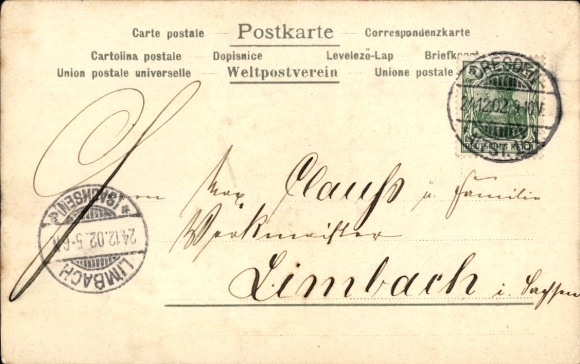 Carte postale Postkarte Correspondenzkarte
Cartolina postale Dopisnice Levelező-Lap Briefkaart
Union postale universelle Weltpostverein Unione postale
DRESDEN
24.12.02.9-10V.
DEUTSCHES REICH
Herrn Max Clauß u. Familie
Werkmeister
Limbach i. Sachsen
(SACHSEN)
24.12.02.5-6N
LIMBACH